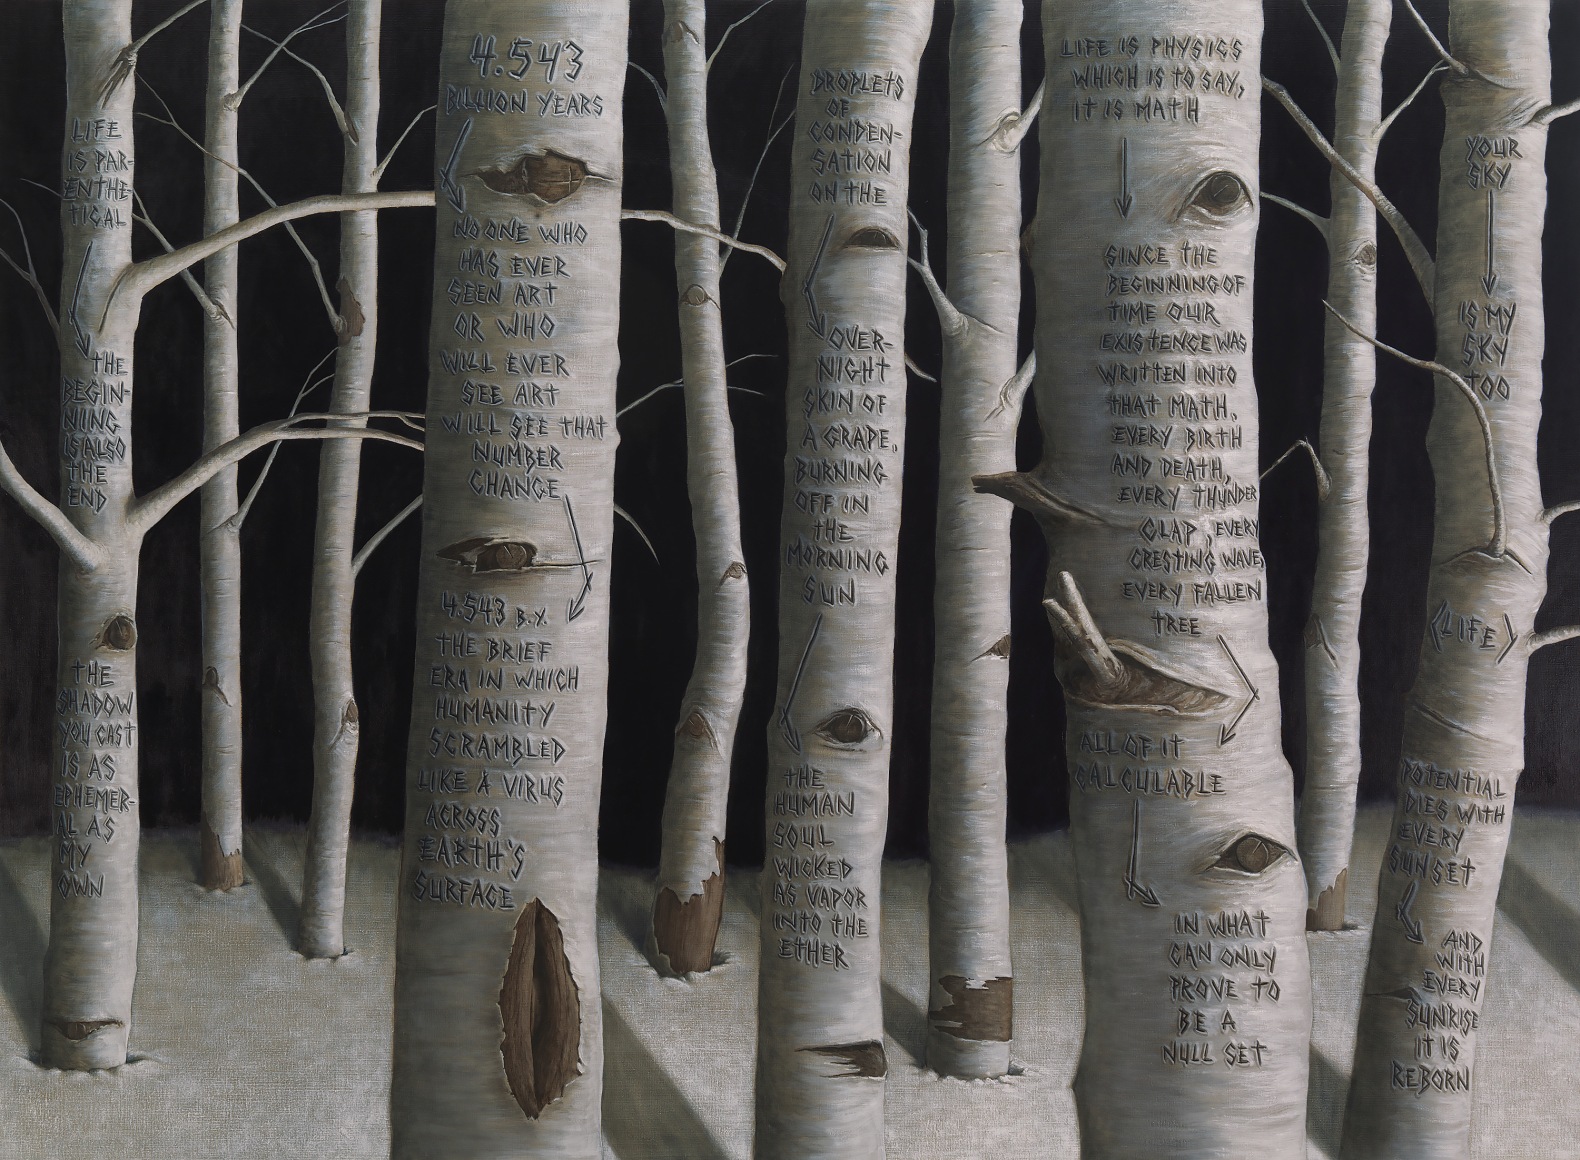 LIFE
IS PAR-
ENTHE-
TICAL
THE
BEGIN-
NING
IS ALSO
THE
END
THE
SHADOW
YOU CAST
IS AS
EPHEMER-
AL AS
MY
OWN
4.543
BILLION YEARS
NO ONE WHO
HAS EVER
SEEN ART
OR WHO
WILL EVER
SEE ART
WILL SEE THAT
NUMBER
CHANGE
4.543 B.Y.
THE BRIEF
ERA IN WHICH
HUMANITY
SCRAMBLED
LIKE A VIRUS
ACROSS
EARTH'S
SURFACE
DROPLETS
OF
CONDEN-
SATION
ON THE
OVER-
NIGHT
SKIN OF
A GRAPE,
BURNING
OFF IN
THE
MORNING
SUN
THE
HUMAN
SOUL
WICKED
AS VAPOR
INTO THE
ETHER
LIFE IS PHYSICS
WHICH IS TO SAY,
IT IS MATH
SINCE THE
BEGINNING OF
TIME OUR
EXISTENCE WAS
WRITTEN INTO
THAT MATH.
EVERY BIRTH
AND DEATH,
EVERY THUNDER
CLAP, EVERY
CRESTING WAVE,
EVERY FALLEN
TREE
ALL OF IT
CALCULABLE
IN WHAT
CAN ONLY
PROVE TO
BE A
NULL SET
YOUR
SKY
IS MY
SKY
TOO
(LIFE)
POTENTIAL
DIES WITH
EVERY
SUNSET
AND
WITH
EVERY
SUNRISE
IT IS
REBORN